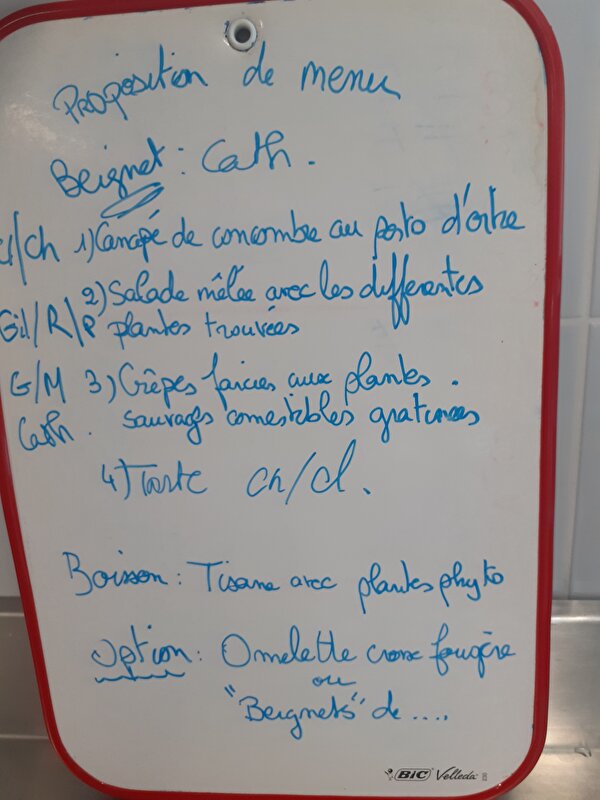 Proposition de menu
Beignet : Cath.
Cl/Ch 1) Canapé de concombre au pesto d'ortie
2) Salade mêlée avec les différentes
Gil/R/P plantes trouvées
G/M 3) Crêpes farcies aux plantes.
Cath. sauvages comestibles gratinées
4) Tarte Ch/Cl.
Boisson : Tisane avec plantes phyto
Option : Omelette crosse fougère
ou
"Beignets" de ....
BIC Velleda